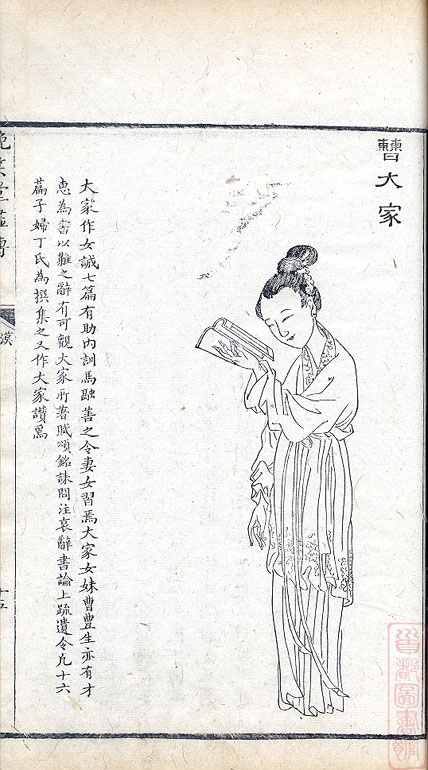 曹大家
大家作女誡七篇有助內訓馬融善之令妻女習焉大家女妹曹豐生亦有才
惠為書以難之辭有可觀大家所著賦頌銘誄問注哀辭書論上疏遺令凡十六
篇子婦丁氏為撰集之又作大家讚焉
晚笑堂畫傳
漢
十五